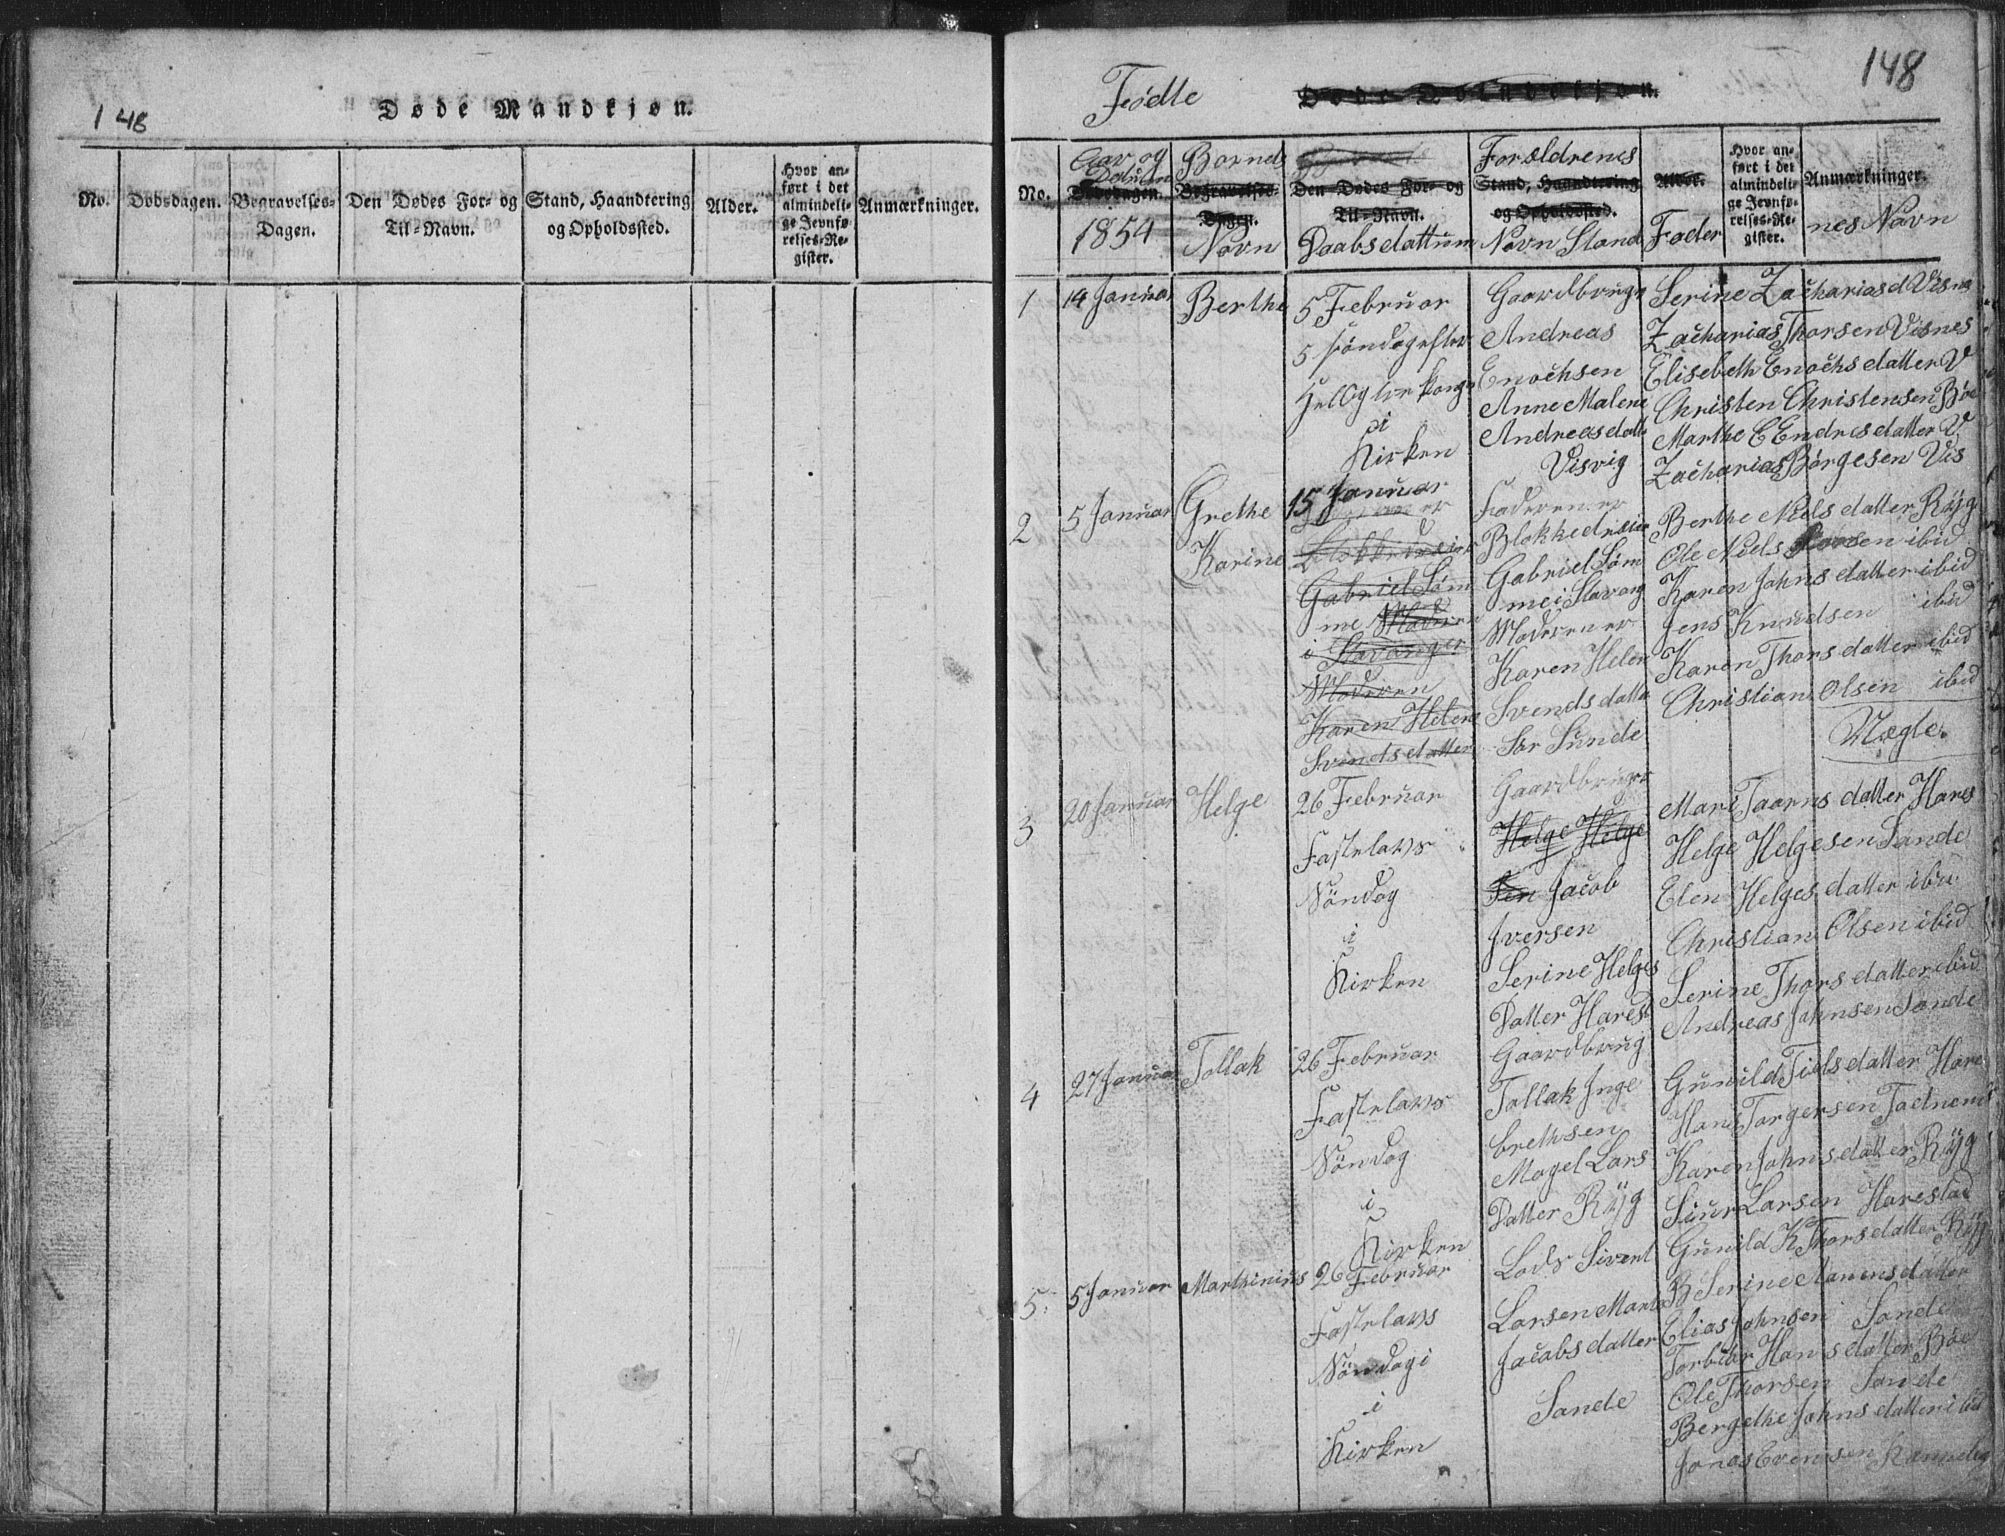 148
Døde Mandkjøn.
No.
Dødsdagen.
Begravelses-
Dagen.
Den Dødes For- og
Til-Navn.
Stand, Haandtering
og Opholdssted.
Alder.
Hvor an-
ført i det
almindeli-
ge Jevnfø-
relses-Re-
gister.
Anmærkninger.
148
Födte
No.
Aar og
Datum
Dødsdagen.
1854
Barnets
Begravelses-
Dagen.
Navn
Den Dødes For- og
Til-Navn.
Daabsdattum
Forældrenes
Stand, Haandtering
og Opholdssted.
Navn Stand
Alder.
Fader
Hvor an-
ført i det
almindeli-
ge Jevnfø-
relses-Re-
gister.
Anmærkninger.
nes Navn
1
14 Januar
Berthe
5 Februar
5 söndag efter
Hellig tre konge
i
Kirken
Gaardbruger
Andreas
Enochsen
Anne Malene
Andreasdatt
Visvig
Serine Zachariasd Visne
Zacharias Thorsen Visnes
Elisebeth Enochsdatter V
Christen Christensen Böe
Marthe E Endresdatter V
Zacharias Börgesen Vis
2
5 Januar
Grethe
Karine
15 Januar
Blokkedreier
Gabriel Söm
me Moderen
i Stavanger
Moderen
Karen Helene
Svendsdatter
Faderen er
Blokkedreier
Gabriel Söm
me i Stavang
Moderen er
Karen Helen
Svendsdatte
Sør Sunde
Berthe Nielsdatter Ryg
Ole Niels sen ibid
Karen Johnsdatter ibid
Jens Knudsen ibid
Karen Thorsdatter ibid
Christian Olsen ibid
Uægte.
3
20 Januar
Helge
26 Februar
Fastelavns
Söndag
i
Kirken
Gaardbruger
Helge Helge
sen Jacob
Iversen
Serine Helges
Datter Harest
Mari Taarnsdatter Hares
Helge Helgesen Sande
Elen Helgesdatter ibid
Christian Olsen ibid
Serine Thorsdatter ibid
Andreas Johnsen Sande
4
27 Januar
Tollak
26 Februar
Fastelavns
Söndag
i
Kirken
Gaardbrug
Tollak Inge
brethsen
Magel Lars
Datter Ryg
Gunild Tielsdatter Hare
Hans Torgersen
Karen Johnsdatter Ryg
Siur Larsen Harestad
Gunild K Thorsdatter Ryg
5
5 Januar
Marthinius
26 Februar
Fastelavns
Söndag i
i
Kirken
Lods Sivert
Larsen Marta
Jacobsdatter
Sande
B Serine datter
Elias Johnsen Sande
Torbiør Hansdatter Böe
Ole Thorsen Sande
Bergethe Johnsdatter ibid
Jonas Evensen